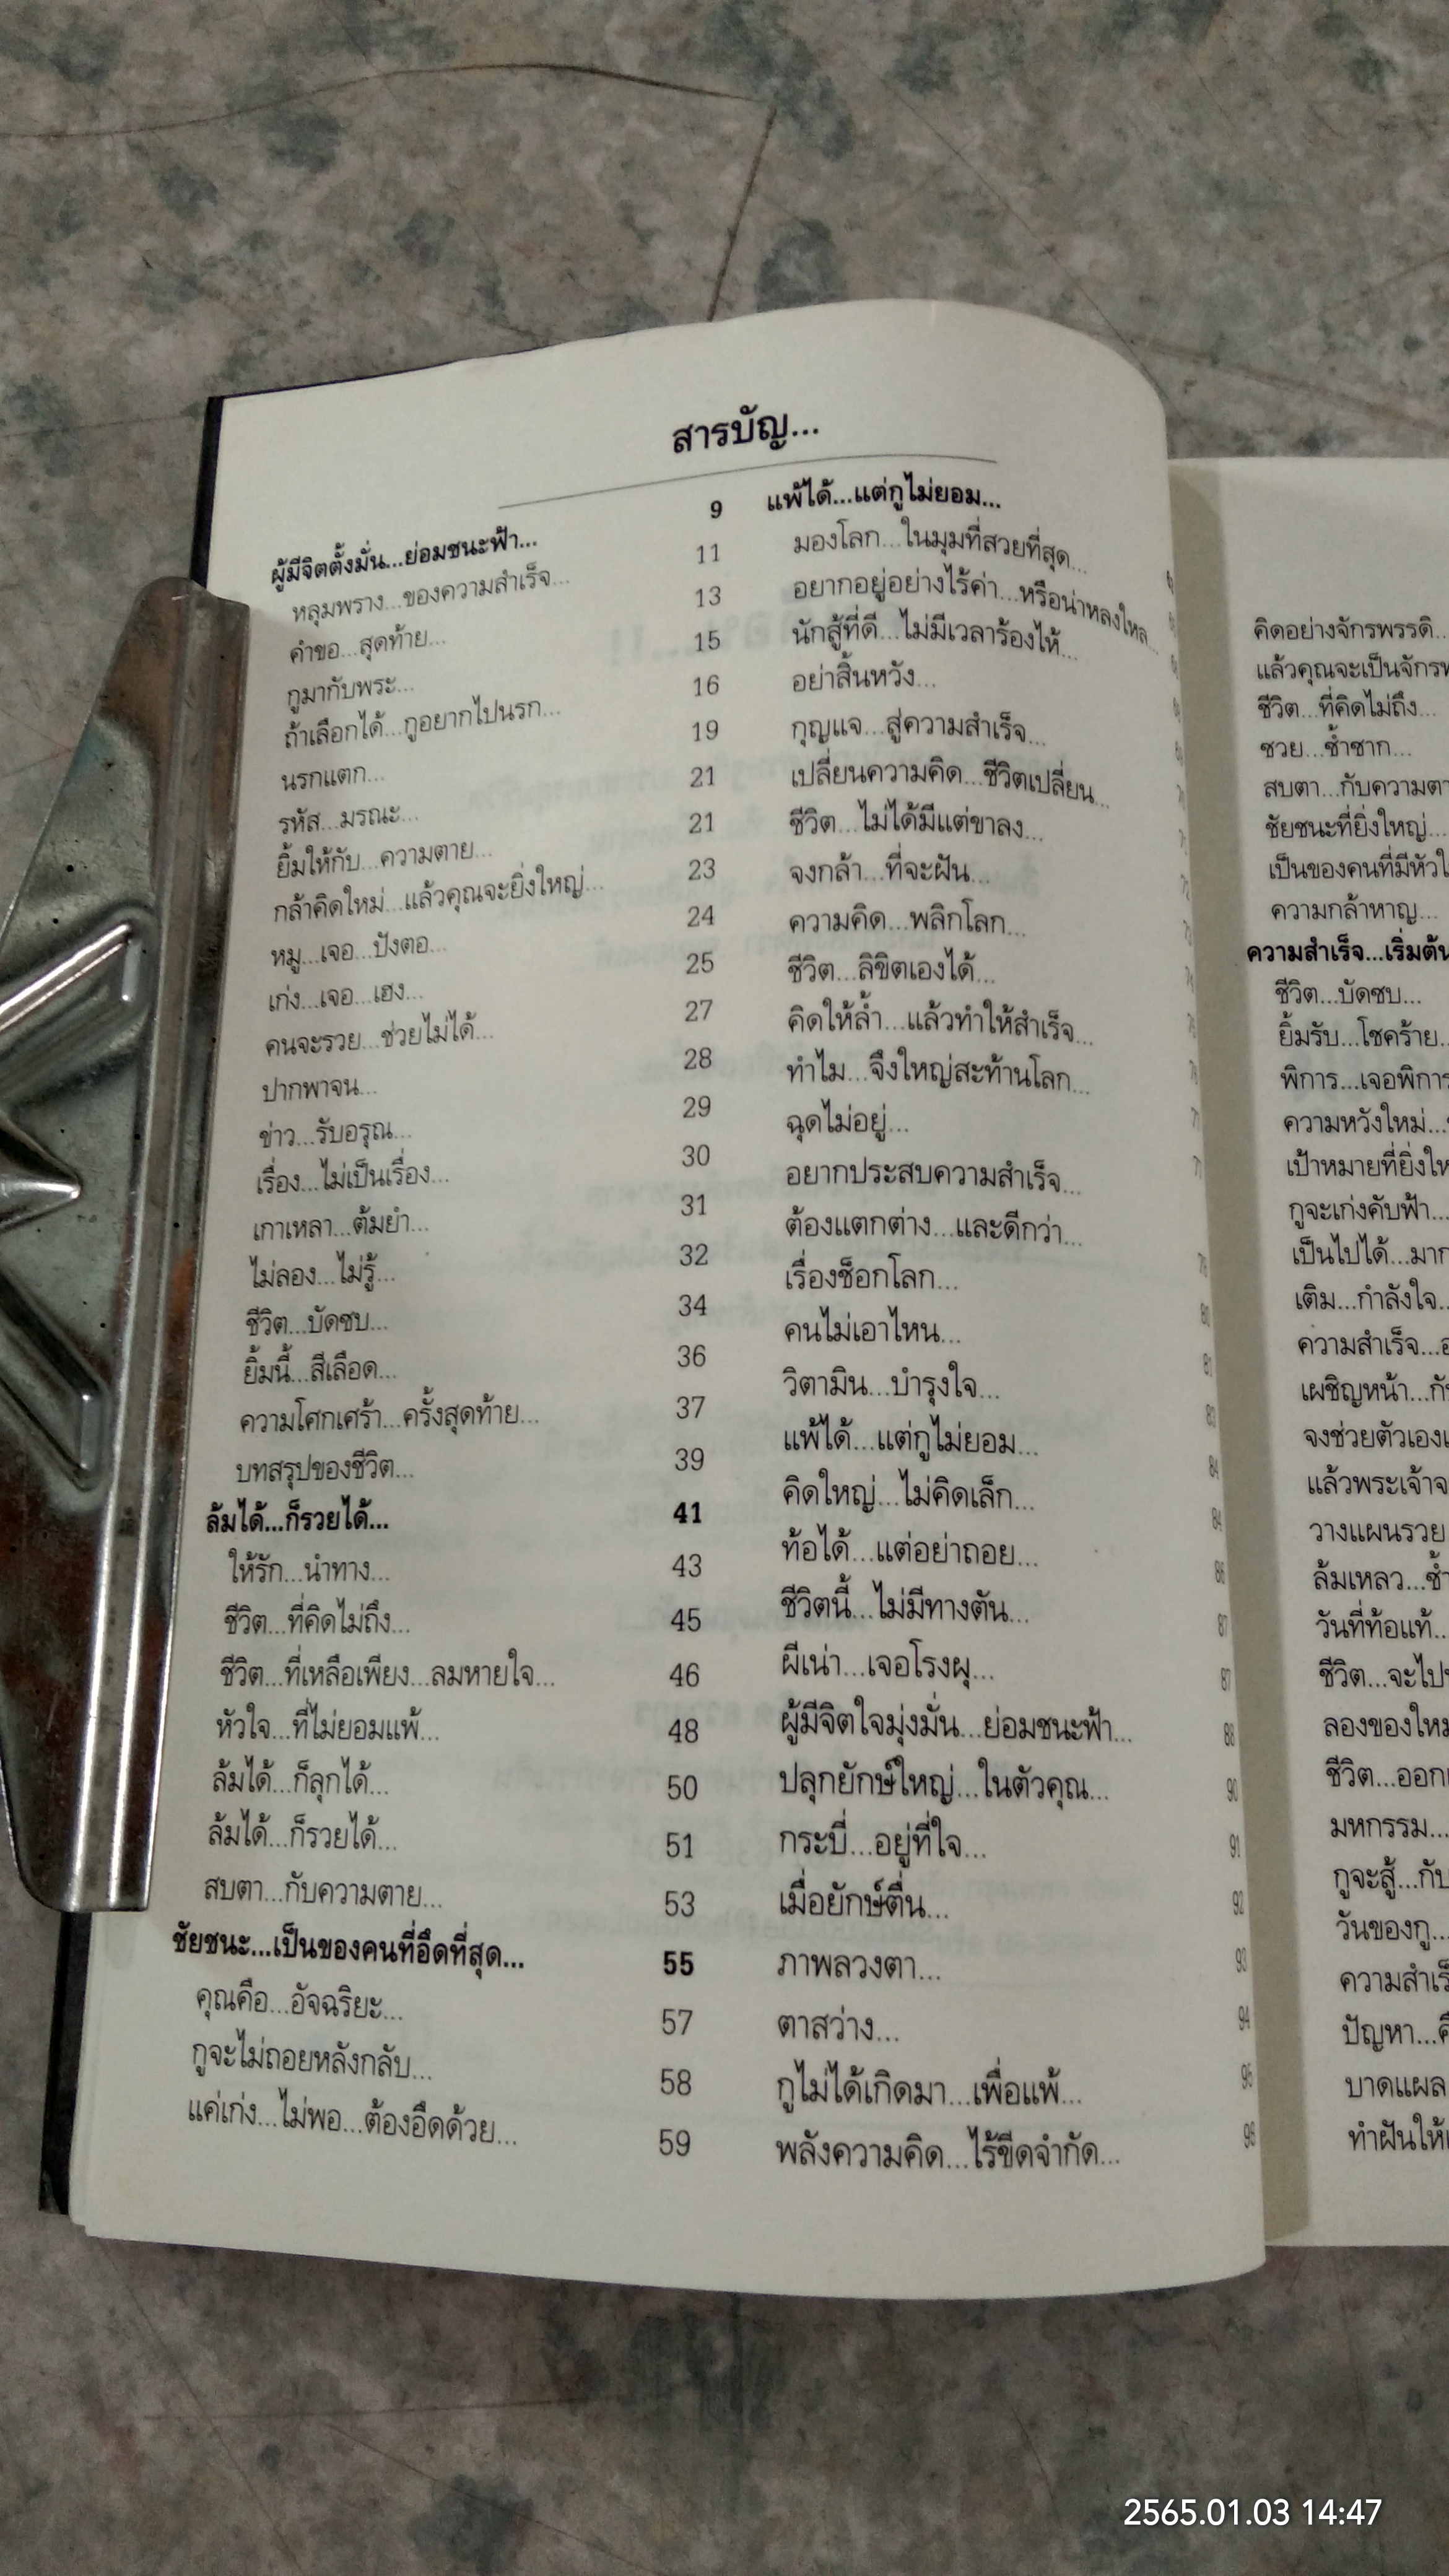 สารบัญ...
ผู้มีจิตตั้งมั่น...ย่อมชนะฟ้า... 9
หลุมพราง...ของความสำเร็จ... 11
คำขอ...สุดท้าย... 13
กูมากับพระ... 15
ถ้าเลือกได้...กูอยากไปนรก... 16
นรกแตก... 19
รหัส...มรณะ... 21
ยิ้มให้กับ...ความตาย... 21
กล้าคิดใหม่...แล้วคุณจะยิ่งใหญ่... 23
หมู...เจอ...ปังตอ... 24
เก่ง...เจอ...เฮง... 25
คนจะรวย...ช่วยไม่ได้... 27
ปากพาจน... 28
ข่าว...รับอรุณ... 29
เรื่อง...ไม่เป็นเรื่อง... 30
เกาเหลา...ต้มยำ... 31
ไม่ลอง...ไม่รู้... 32
ชีวิต...บัดซบ... 34
ยิ้มนี้...สีเลือด... 36
ความโศกเศร้า...ครั้งสุดท้าย... 37
บทสรุปของชีวิต... 39
ล้มได้...ก็รวยได้... 41
ให้รัก...นำทาง... 43
ชีวิต...ที่คิดไม่ถึง... 45
ชีวิต...ที่เหลือเพียง...ลมหายใจ... 46
หัวใจ...ที่ไม่ยอมแพ้... 48
ล้มได้...ก็ลุกได้... 50
ล้มได้...ก็รวยได้... 51
สบตา...กับความตาย... 53
ชัยชนะ...เป็นของคนที่อึดที่สุด... 55
คุณคือ...อัจฉริยะ... 57
กูจะไม่ถอยหลังกลับ... 58
แค่เก่ง...ไม่พอ...ต้องอึดด้วย... 59
แพ้ได้...แต่กูไม่ยอม...
มองโลก...ในมุมที่สวยที่สุด...
อยากอยู่อย่างไร้ค่า...หรือน่าหลงใหล...
นักสู้ที่ดี...ไม่มีเวลาร้องไห้...
อย่าสิ้นหวัง...
กุญแจ...สู่ความสำเร็จ...
เปลี่ยนความคิด...ชีวิตเปลี่ยน...
ชีวิต...ไม่ได้มีแต่ขาลง...
จงกล้า...ที่จะฝัน...
ความคิด...พลิกโลก...
ชีวิต...ลิขิตเองได้...
คิดให้ล้ำ...แล้วทำให้สำเร็จ...
ทำไม...จึงใหญ่สะท้านโลก...
ฉุดไม่อยู่...
อยากประสบความสำเร็จ...
ต้องแตกต่าง...และดีกว่า...
เรื่องช็อกโลก... 80
คนไม่เอาไหน... 81
วิตามิน...บำรุงใจ... 83
แพ้ได้...แต่กูไม่ยอม... 84
คิดใหญ่...ไม่คิดเล็ก... 84
ท้อได้...แต่อย่าถอย... 86
ชีวิตนี้...ไม่มีทางตัน... 87
ผีเน่า...เจอโรงผุ... 87
ผู้มีจิตใจมุ่งมั่น...ย่อมชนะฟ้า... 88
ปลุกยักษ์ใหญ่...ในตัวคุณ... 90
กระบี่...อยู่ที่ใจ... 91
เมื่อยักษ์ตื่น... 92
ภาพลวงตา... 93
ตาสว่าง... 94
กูไม่ได้เกิดมา...เพื่อแพ้... 95
พลังความคิด...ไร้ขีดจำกัด... 96
คิดอย่างจักรพรรดิ...
แล้วคุณจะเป็น
ชีวิต...ที่คิดไม่ถึง...
ซวย...ซ้ำซาก...
สบตา...
ชัยชนะที่ยิ่งใหญ่...
เป็นของคนที่มี
ความกล้าหาญ...
ความสำเร็จ...เริ่มต้น
ชีวิต...บัดซบ...
ยิ้มรับ...โชคร้าย...
พิการ...เจอพิการ
ความหวังใหม่...
เป้าหมายที่
กูจะเก่งคับฟ้า...
เป็นไปได้...
เติม...กำลังใจ...
ความสำเร็จ...
เผชิญหน้า...
จงช่วยตัวเอง
แล้วพระเจ้า
วางแผนรวย
ล้มเหลว...
วันที่ท้อแท้...
ชีวิต...
ลองของ
ชีวิต...
มหกรรม...
กูจะสู้...
วันของกู...
ปัญหา...
บาดแผล
ทำฝันให้
2565.01.03 14:47